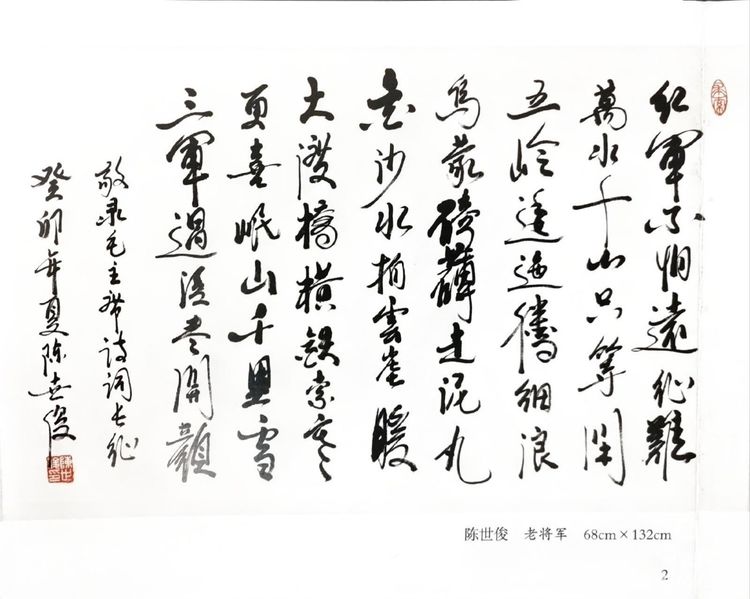 红軍不怕遠征難
萬水千山只等閑
五岭逶迤騰細浪
烏蒙磅礴走泥丸
金沙水拍雲崖暖
大渡橋横鉄索寒
更喜岷山千里雪
三軍過後尽開顔
敬录毛主席诗词长征
癸卯年夏陈世俊
陈世俊 老将军 68cm×132cm
2